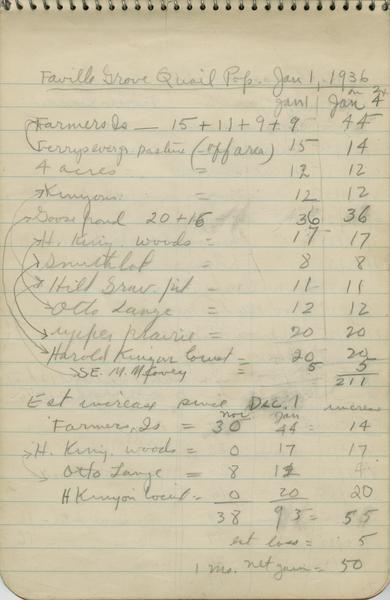 Faville Grove Quail Pop. Jan 1, 1936
Jan 1 Jan 4
Farmers Is — 15 + 11 + 9 + 9 44
pasture (off area) 15 14
4 acres = 12 12
Kinyons = 12 12
Goose pond 20 + 16 36 36
H. King. woods = 17 17
Smith lot = 8 8
Hill Grav. pit = 11 11
Otto Lange = 12 12
upper prairie = 20 20
Harold Kinyon = 20 20
S.E. = 5 5
211
Est increase since Dec. 1 increase
Nov Jan
Farmers, Is = 30 44 = 14
H. King. woods = 0 17 17
Otto Lange = 8 12 4
H Kinyon = 0 20 20
38 93 = 55
est loss = 5
1 mo. net gain = 50